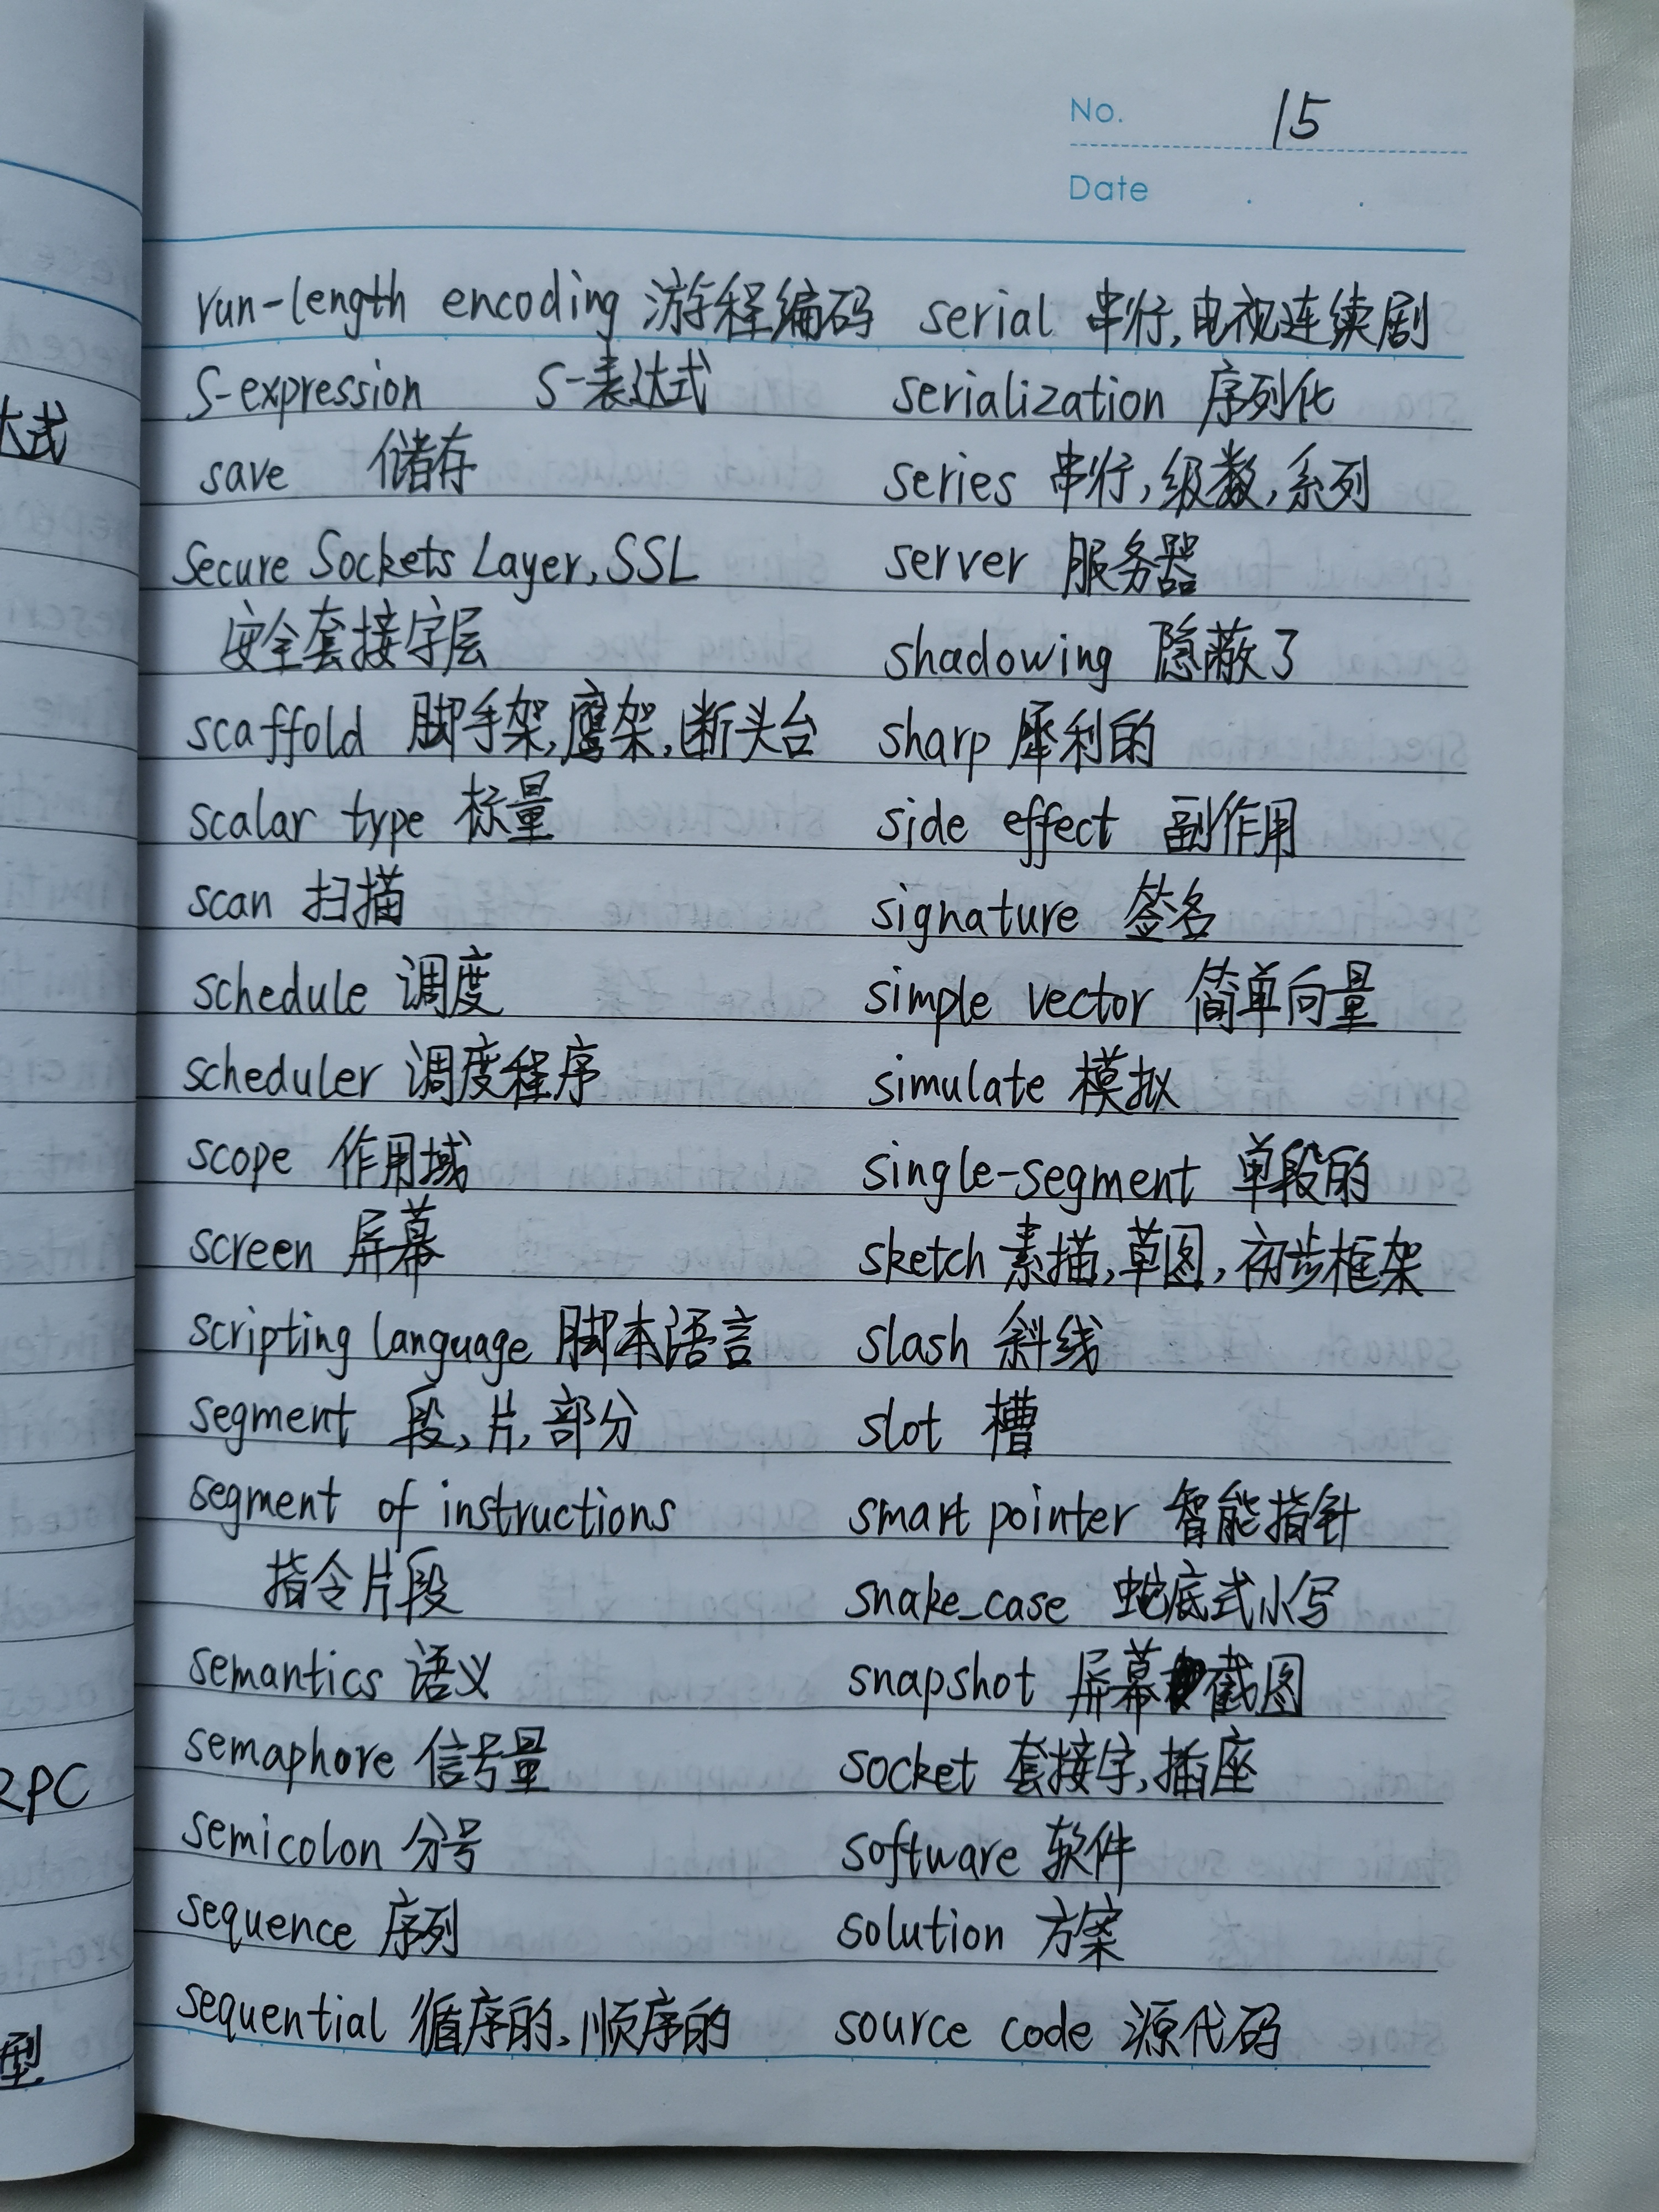 No. 15
Date . .
run-length encoding 游程编码
S-expression S-表达式
save 储存
Secure Sockets Layer, SSL
安全套接字层
scaffold 脚手架,鹰架,断头台
scalar type 标量
scan 扫描
schedule 调度
scheduler 调度程序
scope 作用域
screen 屏幕
scripting language 脚本语言
segment 段,片,部分
segment of instructions
指令片段
semantics 语义
semaphore 信号量
semicolon 分号
sequence 序列
sequential 循序的、顺序的
serial 串行,电视连续剧
serialization 序列化
series 串行,级数,系列
server 服务器
shadowing 隐蔽了
sharp 犀利的
side effect 副作用
signature 签名
simple vector 简单向量
simulate 模拟
single-segment 单段的
sketch 素描,草图,初步框架
slash 斜线
slot 槽
smart pointer 智能指针
snake_case 蛇底式小写
snapshot 屏幕截图
socket 套接字,插座
software 软件
solution 方案
source code 源代码
大式
RPC
型